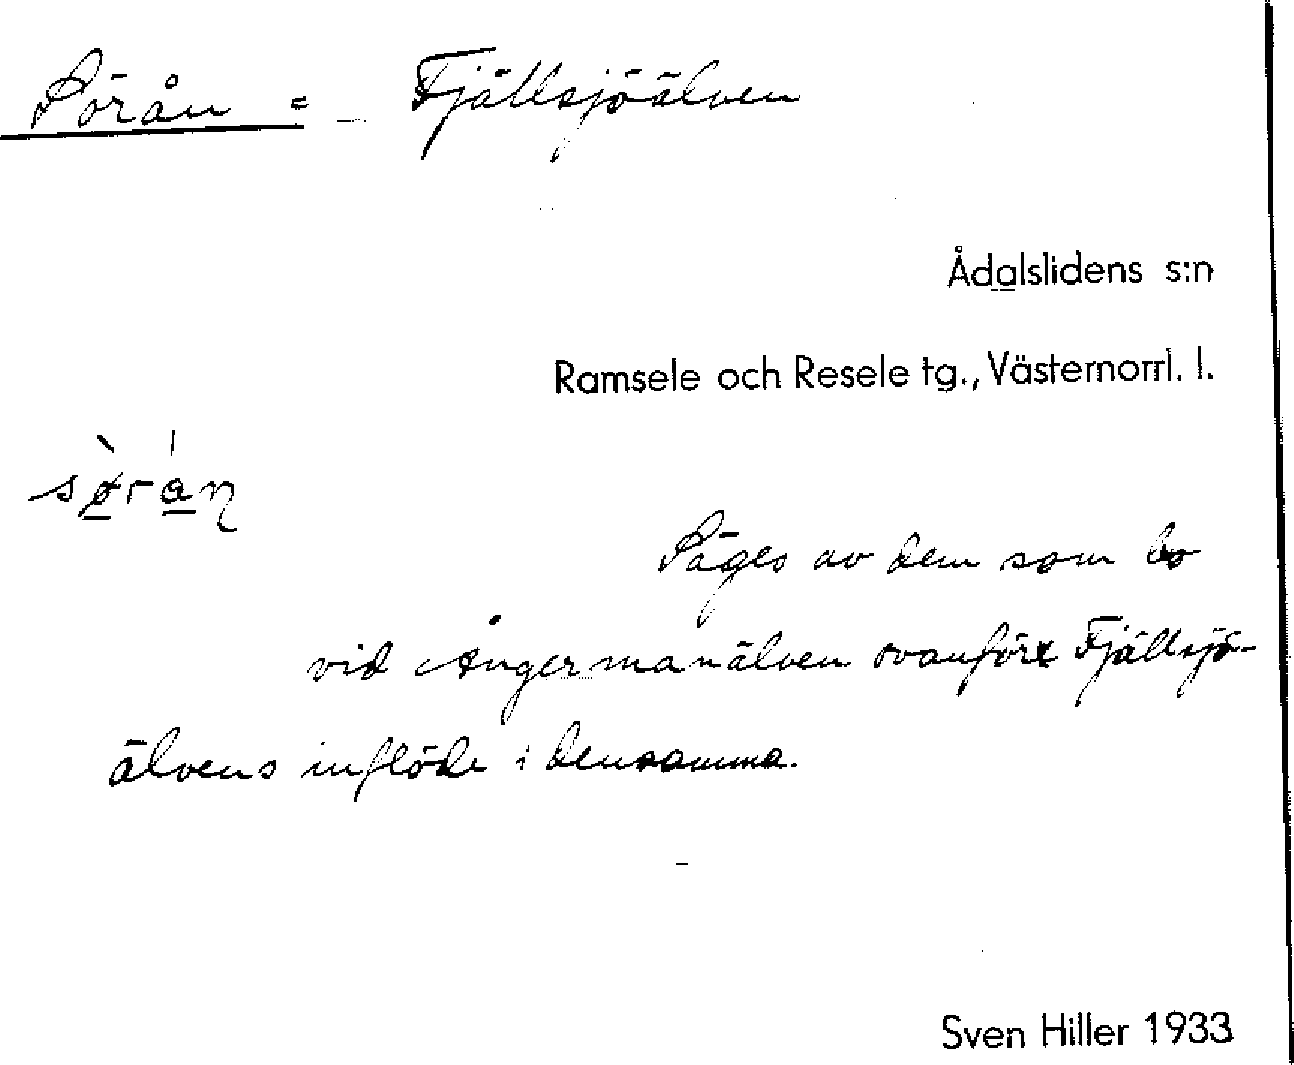 Sörån = Fjällsjöälven
Ådalslidens s:n
Ramsele och Resele tg., Västernorrl. l.
sø̀rån
Säges av dem som bo
vid Ångermanälven ovanför Fjällsjö-
älvens inflöde i densamma.
Sven Hiller 1933